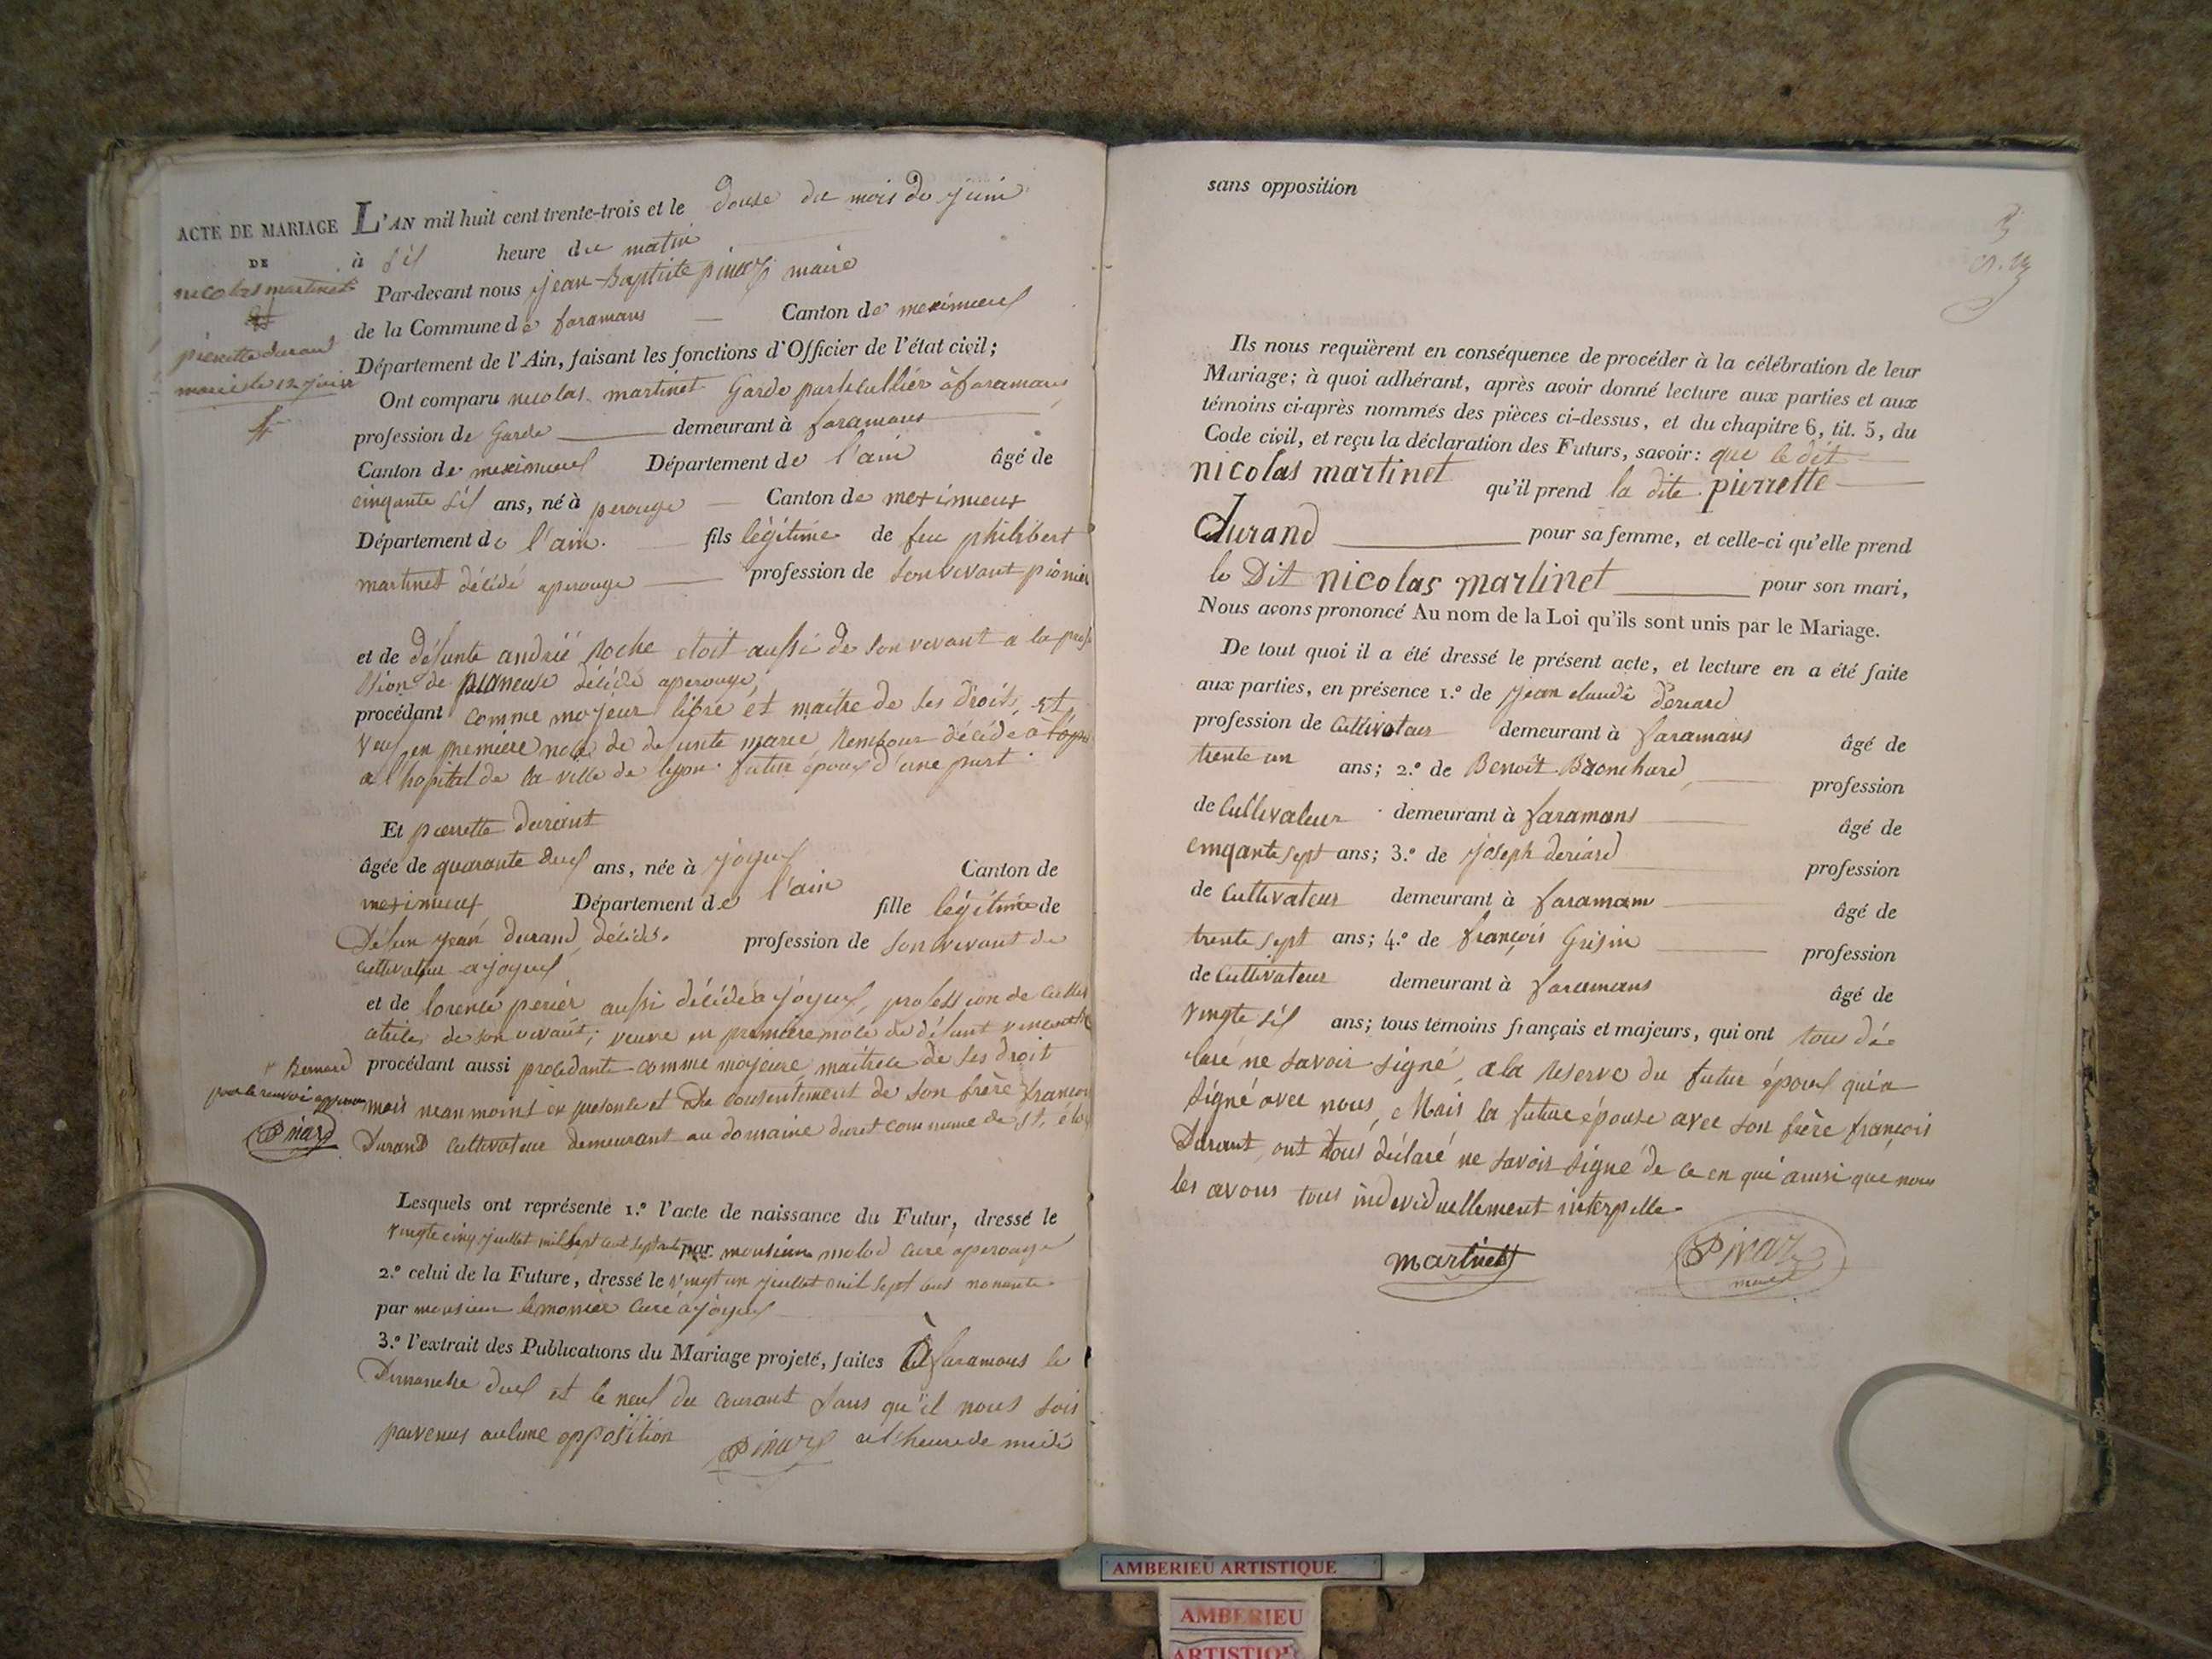 ACTE DE MARIAGE
DE
nicolas martinet
et
pierrette durand
mariés le 12 juin
L'AN mil huit cent trente-trois et le douse du mois de juin
à sil heure du matin
Par-devant nous jean Baptiste pivaz maire
de la Commune de faramans — Canton de meximieul
Département de l'Ain, faisant les fonctions d'Officier de l'état civil;
Ont comparu nicolas martinet Garde particullier à faramans
profession de Garde demeurant à faramans
Canton de meximieul Département de l'ain âgé de
cinqante sil ans, né à perouge — Canton de meximieux
Département de l'ain. fils légitime de feu philibert
martinet décédé a perouge profession de son vivant
et de defunte andrié Roche etoit aussi de son vivant a la profe
ssion de décédé a perouge,
procédant comme majeur libre et maitre de ses droits, et
veuf en premiere de defunte marie décédé à
a l'hopital de la ville de lyon. futur époux d'une part.
Et pierrette durant
âgée de quarante deux ans, née à joyeux Canton de
meximieux Département de l'ain fille légitime de
Défun jean durand décidé. profession de son vivant de
cultivateur a joyeux
et de lorence perier aussi décédé a joyeux, profession de culti
de son vivant; veuve en premiere de défunt vincent
" Bernard
pour le renvoi
Pivaz
procédant aussi procedante comme majeure maitresse de ses droit
mais nean moint en presence et du consentement de son frère francois
Durand cultivateur demeurant au domaine duret commune de st. élo
Lesquels ont représenté 1.º l'acte de naissance du Futur, dressé le
vingte cinq juillet mil sept cent par monsieur molod curé a perouge
2.º celui de la Future, dressé le vingt un juillet mil sept cens nonante
par monsieur lemonier curé à joyeux
3.º l'extrait des Publications du Mariage projeté, faites à faramans le
Dimanche deux et le neuf du courant sans qu'il nous sois
parvenus aucune opposition Pivaz a l'heure de midi
sans opposition
Ils nous requièrent en conséquence de procéder à la célébration de leur
Mariage; à quoi adhérant, après avoir donné lecture aux parties et aux
témoins ci-après nommés des pièces ci-dessus, et du chapitre 6, tit. 5, du
Code civil, et reçu la déclaration des Futurs, savoir: que le dit
nicolas martinet qu'il prend la dite pierrette
durand pour sa femme, et celle-ci qu'elle prend
le Dit nicolas martinet pour son mari,
Nous avons prononcé Au nom de la Loi qu'ils sont unis par le Mariage.
De tout quoi il a été dressé le présent acte, et lecture en a été faite
aux parties, en présence 1.º de jean claude deriard
profession de Cultivateur demeurant à faramans âgé de
trente un ans; 2.º de Benoit Branchard profession
de Cultivateur demeurant à faramans âgé de
cinqante sept ans; 3.º de joseph deriard profession
de Cultivateur demeurant à faramans âgé de
trente sept ans; 4.º de françois Grisin profession
de Cultivateur demeurant à faramans âgé de
vingte sil ans; tous témoins français et majeurs, qui ont tous dé
claré ne savoir signé, a la reserve du futur époux qui a
signé avec nous, Mais la future épouse avec son frère françois
Durant, ont tous déclaré ne savoir signé de ce en qui ainsi que nous
les avons tous individuellement interpellé.
martinet
Pivaz
maire
AMBERIEU ARTISTIQUE
AMBERIEU